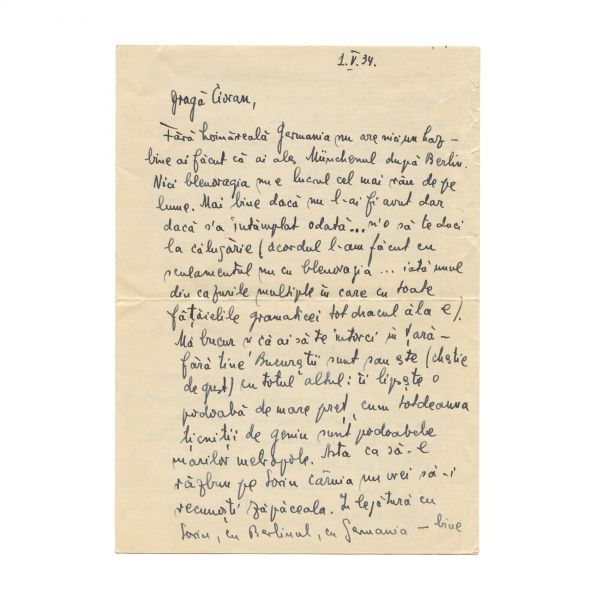 1.V.34.
Dragă Cioran,
Fără hoinăreală Germania nu are nici un haz –
bine ai făcut că ai ales Münchenul după Berlin.
Nici blenoragia nu e lucrul cel mai rău de pe
lume. Mai bine dacă nu l-ai fi avut dar
dacă s'a întâmplat odată... n'o să te duci
la călugărie (acordul l-am făcut cu
sculamentul nu cu blenoragia ... iată unul
din cazurile multiple în care cu toate
fâțâielile gramaticei tot dracul ăla e).
Mă bucur că ai să te întorci în țară –
fără tine Bucureștii sunt sau este (chestie
de gust) cu totul altul: îi lipsește o
podoabă de mare preț, cum totdeauna
țicniții de geniu sunt podoabele
marilor metropole. Asta ca să-l
răzbun pe Sorin căruia nu vrei să-i
recunoști zăpăceala. În legătură cu
Sorin, cu Berlinul, cu Germania – bine